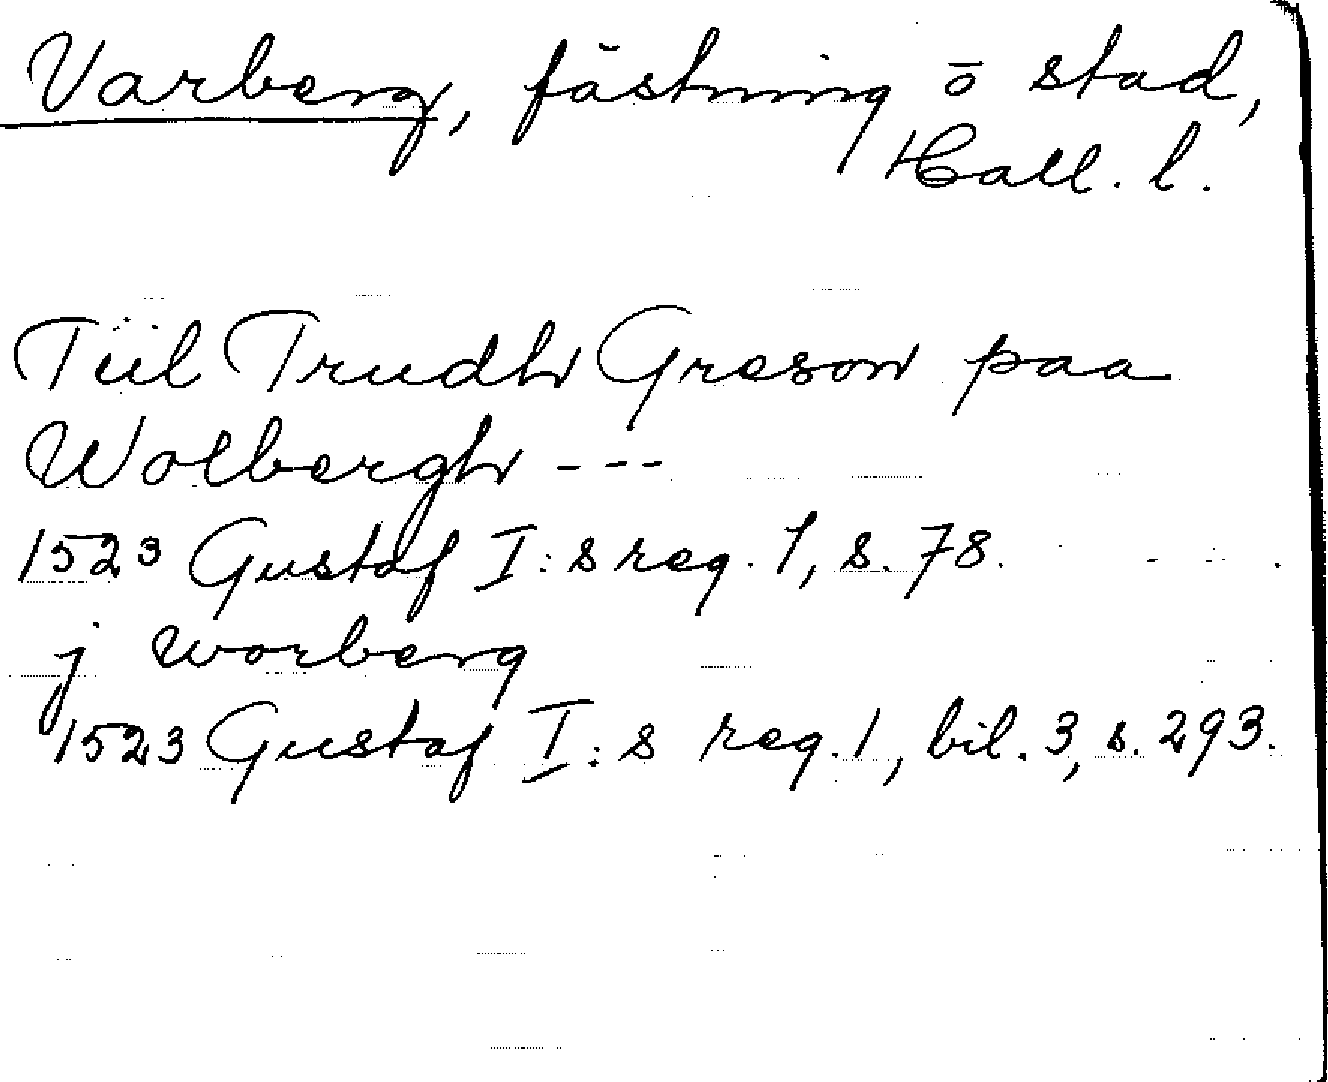 Varberg, fästning o stad,
Hall. l.
Tiil Trudh Greson paa
Wolbergh ---
1523 Gustaf I:s reg. 1, s. 78.
j worberg
1523 Gustaf I:s reg. 1, bil. 3, s. 293.